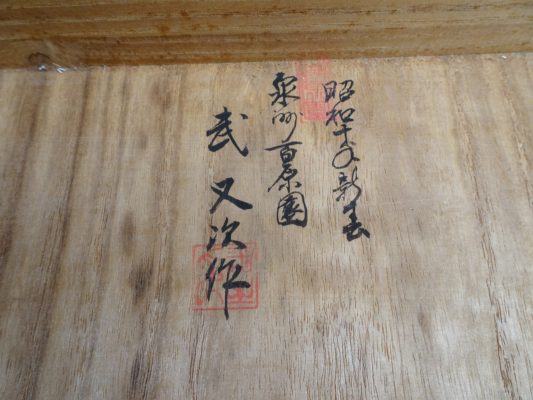 昭和十年新春
泉州百原園
武又次作